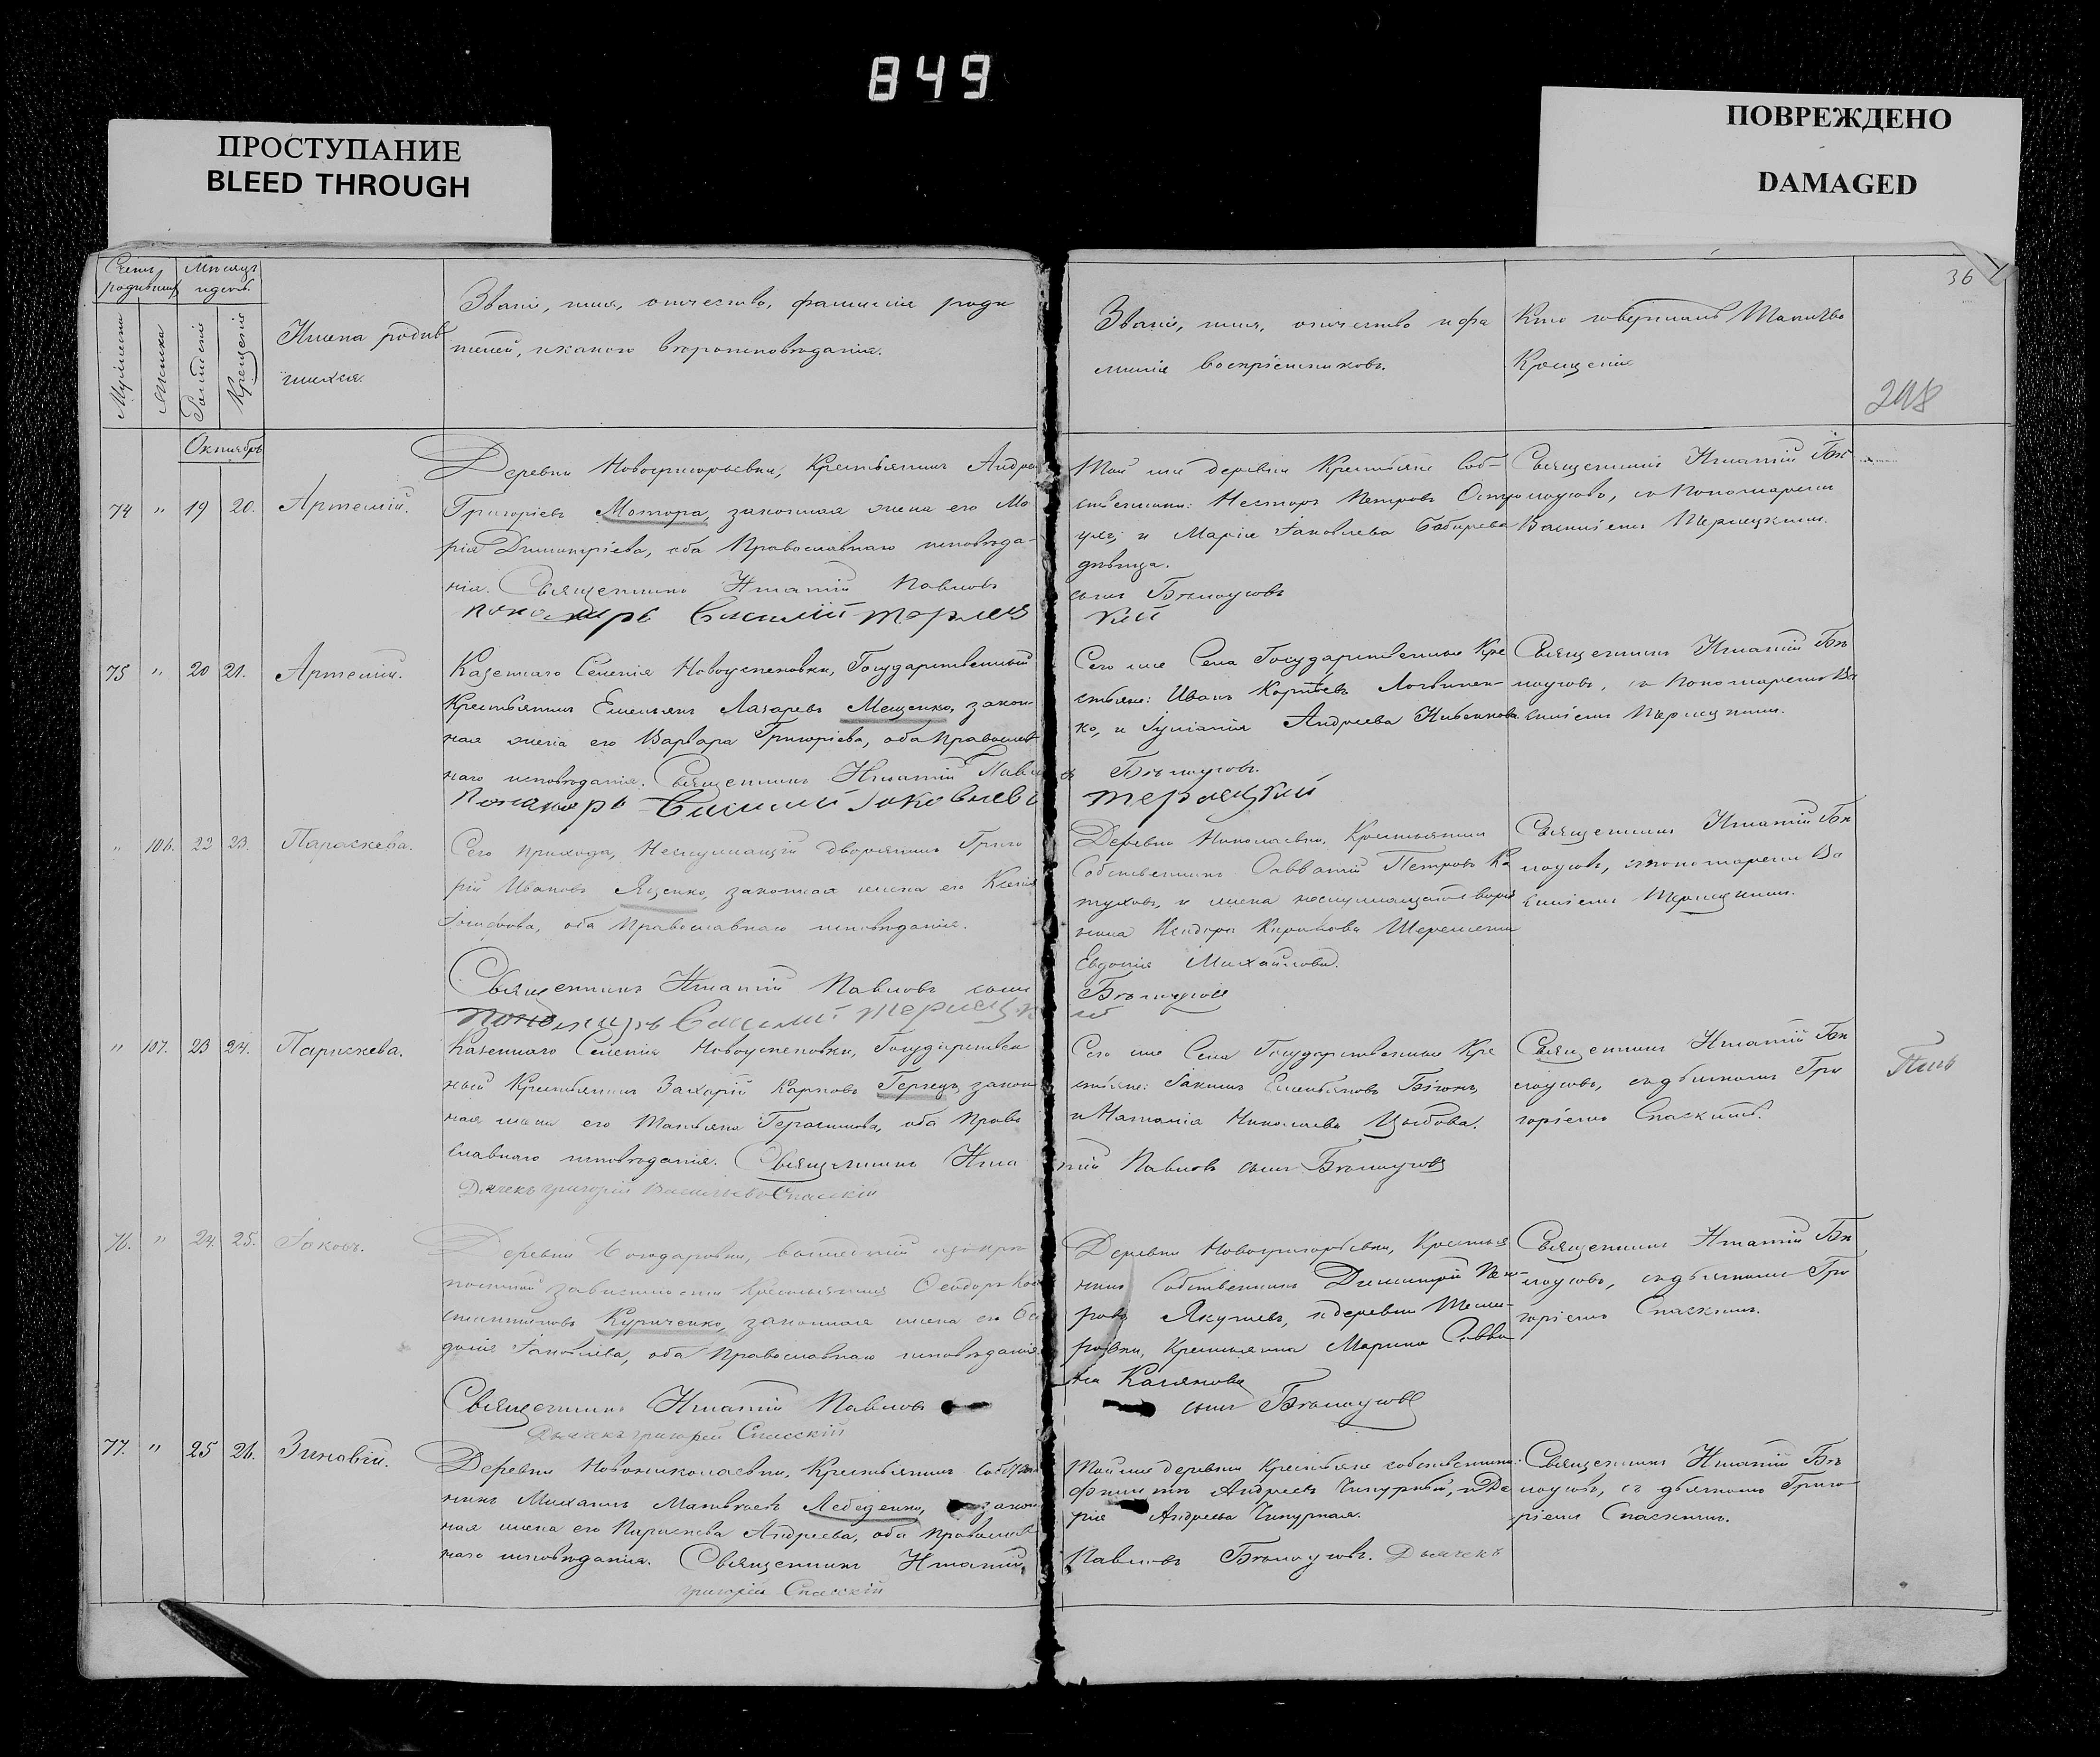 849
ПРОСТУПАНИЕ
BLEED THROUGH
ПОВРЕЖДЕНО
DAMAGED
36
298
Счетъ родившихся
Мѣсяцъ и день
Мужеска
Женска
Рожденіе
Крещеніе
Имена родив
шихся.
Званіе, имя, отчество, фамилія роди
телей, и какого вѣроисповѣданія.
Званіе, имя, отчество и фа
милія воспріемниковъ.
Кто совершалъ Таинство
Крещенія
Октябрь
74 " 19 20. Артемій.
Деревни Новогригорьевки, Крестьянинъ Андрей
Григорьевъ Мотора, законная жена его Ма
рія Димитріева, оба Православнаго исповѣда-
нія. Священникъ Игнатій Павловъ
пономарь Василій Терлец
Той же деревни Крестьяне Соб-
ственники: Несторъ Петровъ
и Марія Іаковлева
дѣвица.
сынъ Бѣлоусовъ
кій
Священникъ Игнатій Бѣ
лоусовъ, съ Пономаремъ
Василіемъ Терлецкимъ.
75 " 20 21. Артемій.
Казеннаго Селенія Новоуспеновки, Государственный
Крестьянинъ Емельянъ Лазаревъ Мещенко, закон-
ная жена его Варвара Григоріева, оба Православ
наго исповѣданія. Священникъ Игнатій Павло
Пономарь Василий Іаковлевъ
Сего же Села Государственные Кре
стьяне: Иванъ Корнѣевъ Логвинен-
ко, и Іуліанія Андреева
въ Бѣлоусовъ.
терлецкий
Священникъ Игнатій Бѣ
лоусовъ, съ Пономаремъ Ва
силіемъ Терлецкимъ.
" 106. 22 23. Параскева.
Сего прихода, Неслужащій дворянинъ Григо
рій Ивановъ Яценко, законная жена его Ксенія
Іосифова, оба Православнаго исповѣданія.
Священникъ Игнатій Павловъ сынъ
пономарь Василий терлецк
Деревни Николаевки, Крестьянинъ
Собственникъ Савватій Петровъ Ка
туховъ, и жена неслужащаго дворя
нина Исидора Карпова
Евдокія Михайлова.
Бѣлоусовъ
ий
Священникъ Игнатій Бѣ
лоусовъ, съ пономаремъ Ва
силіемъ Терлецкимъ.
" 107. 23 24. Параскева.
Казеннаго Селенія Новоуспеновки, Государствен
ный Крестьянинъ Захарій Карповъ Герпецъ, закон
ная жена его Татьяна Герасимова, оба Право
славнаго исповѣданія. Священникъ Игна
Дьячекъ григорій Васильевъ Спасскій
Сего же Села Государственные Кре
стьяне: Іакимъ Емельяновъ
и Наталія Николаева Цыбова.
тій Павловъ сынъ Бѣлоусовъ
Священникъ Игнатій Бѣ
лоусовъ, съ дьячкомъ Гри
горіемъ Спаскимъ.
76. " 24. 25. Іаковъ.
Деревни Богодаровки, вышедшій изъ крѣ
постной зависимости Крестьянинъ Ѳеодоръ Кон
стантиновъ Куриченко, законная жена его Ев
докія Іаковлева, оба Православнаго исповѣданія
Священникъ Игнатій Павловъ
Дьячекъ григорій Спасскій
Деревни Новогригорьевки, Крестья
нинъ Собственникъ Димитрій Пет-
ровъ Якушевъ, и деревни Теми-
ровки, Крестьянка Марина Савва
сынъ Бѣлоусовъ
Священникъ Игнатій Бѣ
лоусовъ, съ дьячкомъ Гри
горіемъ Спаскимъ.
77. " 25 26. Зиновій.
Деревни Новониколаевки, Крестьянинъ Собствен
никъ Михаилъ Матвѣевъ Лебеденко, закон
ная жена его Параскева Андреева, оба православ
наго исповѣданія. Священникъ Игнатій
григорій Спасскій
Той же деревни Крестьяне собственники:
Филиппъ Андреевъ Чипурный, и Да
рія Андреева Чипурная.
Павловъ Бѣлоусовъ. Дьячекъ
Священникъ Игнатій Бѣ
лоусовъ, съ дьячкомъ Григо
ріемъ Спаскимъ.